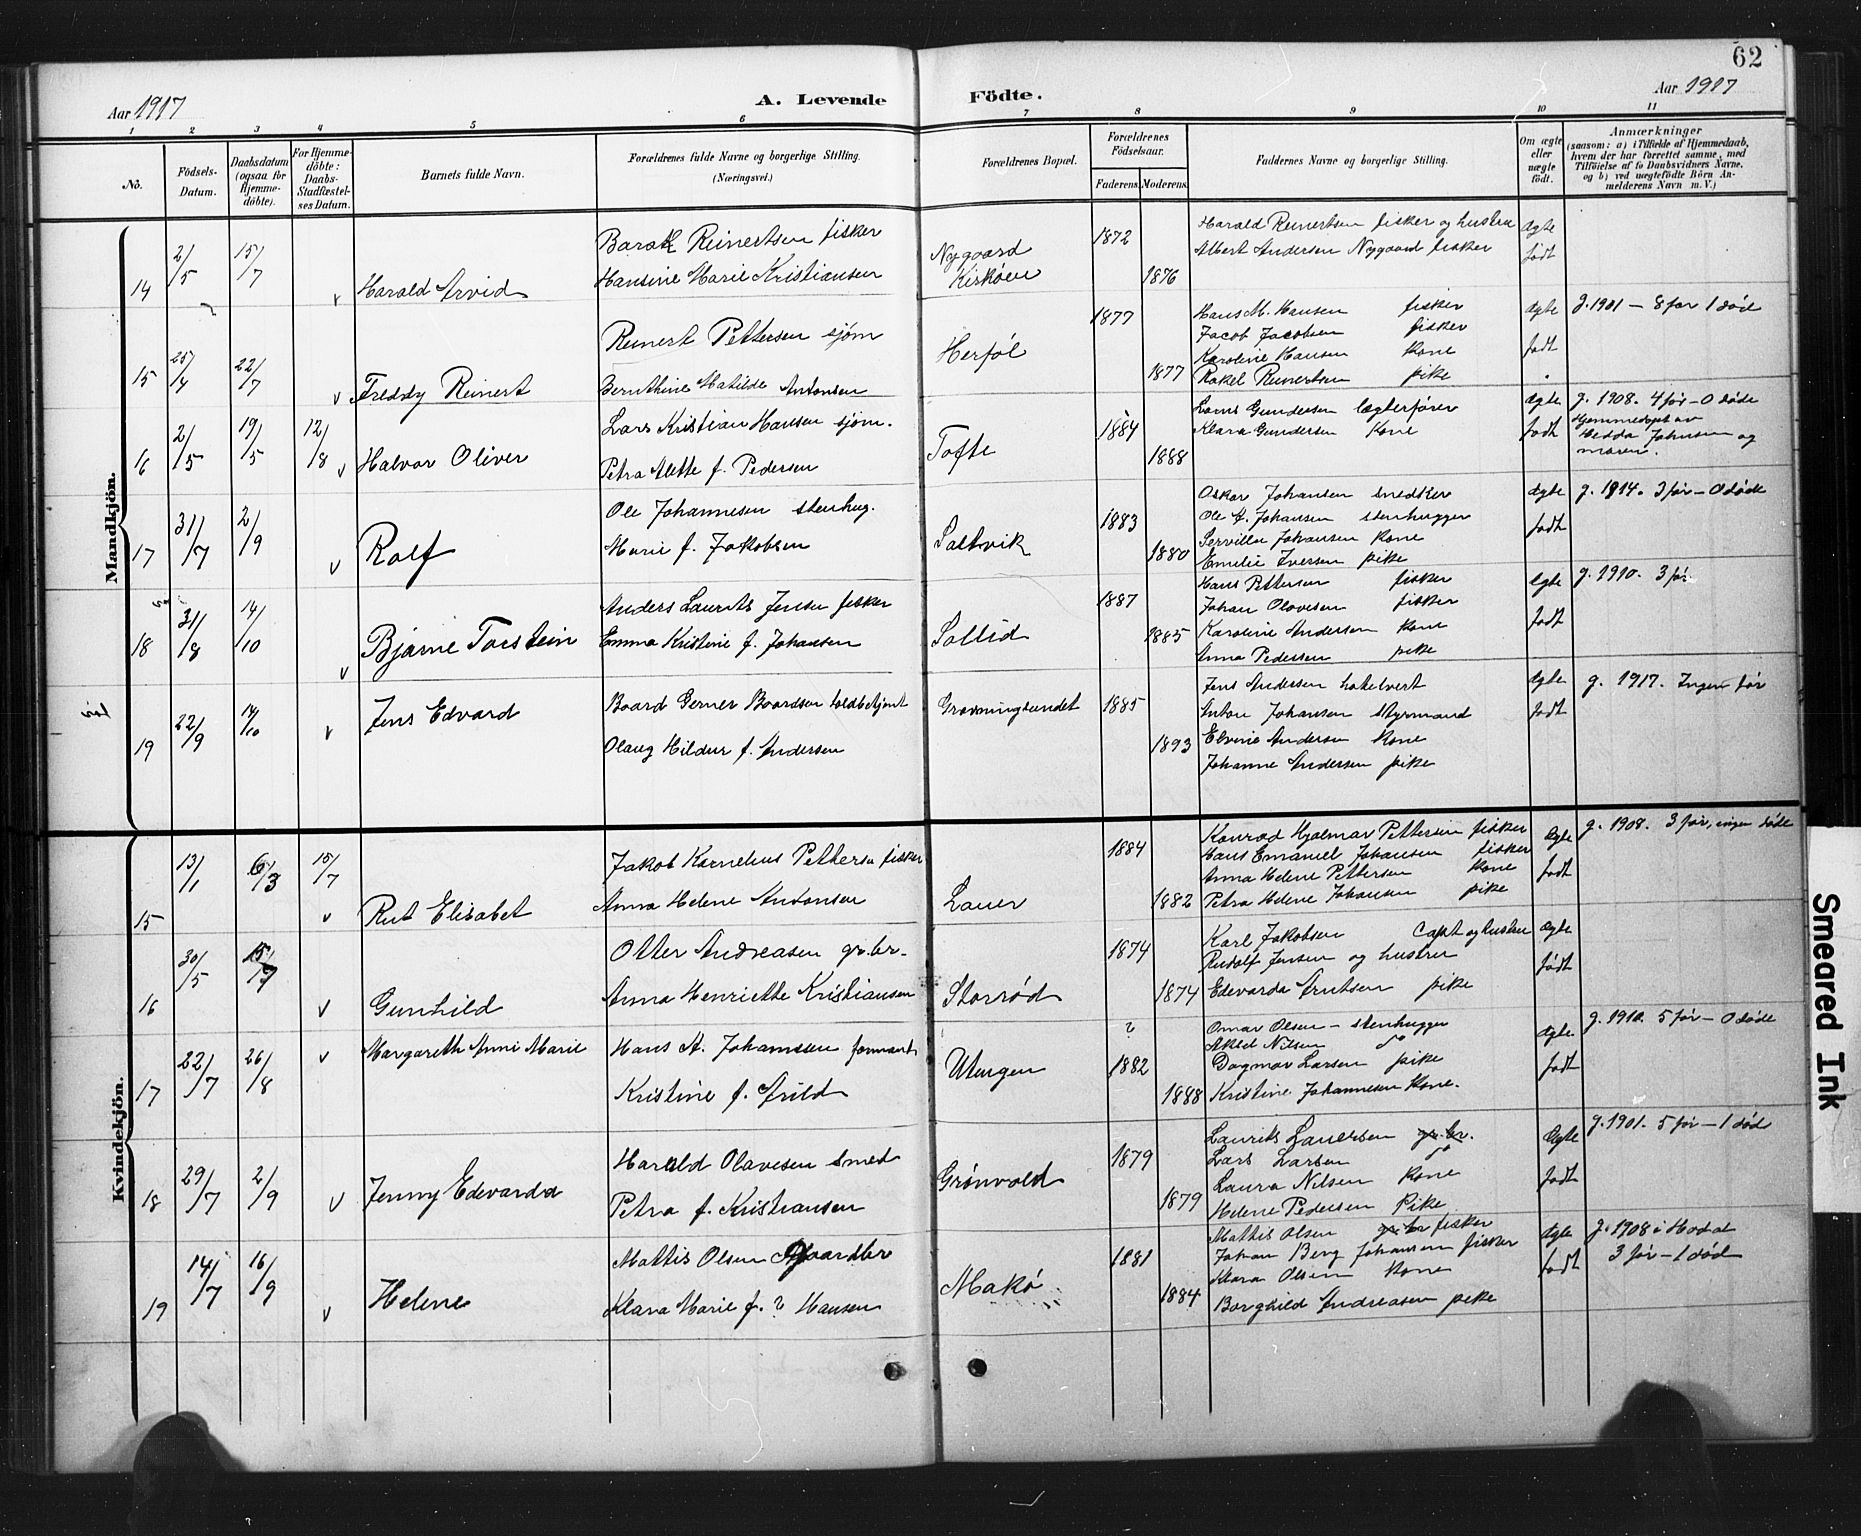 62
Aar 1917
A. Levende Födte.
Aar 1917
1 2 3 4 5 6 7 8 9 10 11
No.
Födsels-
Datum.
Daabsdatum
(ogsaa for
Hjemme-
döbte).
For Hjemme-
döbte:
Daabs-
Stadfæstel-
ses Datum.
Barnets fulde Navn.
Forældrenes fulde Navne og borgerlige Stilling.
(Næringsvei.)
Forældrenes Bopæl.
Forældrenes
Födselsaar.
Faderens. Moderens.
Faddernes Navne og borgerlige Stilling.
Om ægte
eller
uægte
födt.
Anmærkninger
(saasom: a) i Tilfælde af Hjemmedaab,
hvem der har forrettet samme, med
Tilföielse af to Daabsvidners Navne,
og b) ved uægtefödte Börn An-
melderens Navn m. V.)
Mandkjön.
14 2/5 15/7 v Harald Arvid
Barak Reinertsen fisker
Hansine Marie Kristiansen
Nygaard
Kirkøen
1872
1876
Harald Reinertsen fisker og hustru
Albert Andersen Nygaard fisker
ægte
født
15 25/4 22/7 v Freddy Reinert
Reinert Pettersen sjøm
Bernthine Matilde Antonsen
Herføl
1877
1877
Hans M. Hansen fisker
Jacob Jacobsen fisker
Karoline Hansen kone
Rakel Reinertsen pike
ægte
født
g. 1901 – 8 før 1 død
16 2/5 19/5 12/8 v Halvor Oliver
Lars Kristian Hansen sjøm.
Petra Alette f. Pedersen
Tofte
1884
1888
Laurs Gundersen lægterfører
Klara Gundersen Kone
ægte
født
g. 1908. 4 før – 0 døde
Hjemmedøpt av
Hedda Johnsen og
moren.
17 31/7 2/9 v Rolf
Ole Johannesen stenhug.
Marie f. Jakobsen
Saltvik
1883
1880
Oskar Johansen snedker
Ole A. Johansen stenhugger
Servilla Johansen kone
Emilie Iversen pike
ægte
født
g. 1914. 3 før – 0 døde
18 31/8 14/10 v Bjarne Torstein
Anders Laurits Jensen fisker
Emma Kristine f. Johansen
Sollid
1887
1885
Hans Pettersen fisker
Johan Olavesen fisker
Karoline Andersen kone
Anna Pedersen pike
ægte
født
g. 1910. 3 før
19 22/9 14/10 v Jens Edvard
Baard Gerner Baardsen toldbetjent
Olaug Hildur f. Andersen
Gravningsundet
1885
1893
Jens Andersen hotelvert
Anton Johansen styrmand
Elvine Andersen kone
Johanne Andersen pike
ægte
født
g. 1917. Ingen før
Kvindekjön.
15 13/1 6/3 15/7 v Rut Elisabet
Jakob Kornelius Pettersen fisker
Anna Helene Antonsen
Lauer
1884
1882
Konrad Hjalmar Pettersen fisker
Hans Emanuel Johansen fisker
Anna Helene Pettersen kone
Petra Helene Johansen pike
ægte
født
g. 1908. 3 før, ingen døde
16 30/5 15/7 v Gunhild
Otter Andreasen gr.br.
Anna Henriette Kristiansen
Storrød
1874
1874
Karl Jakobsen Capt og hustru
Rudolf Jensen og hustru
Edevarda Arntsen pike
ægte
født
17 22/7 26/8 v Margareth Anni Marie
Hans A. Johansen formand
Kristine f. Arild
Utengen
?
1882
1888
Omar Olsen – stenhugger
Aksel Nilsen do
Dagmar Larsen pike
Kristine Johannesen kone.
ægte
født
g. 1910. 5 før – 0 døde
18 29/7 2/9 v Jenny Edevarda
Harald Olavesen smed
Petra f. Kristiansen
Grønvold
1879
1879
Laurits Lauersen gr. br.
Lars Larsen do
Laura Nilsen kone
Helene Pedersen Pike
ægte
født
g. 1901. 5 før – 1 død
19 14/7 16/9 v Helene
Mattis Olsen Gaardbr
Klara Marie f. ? Hansen
Makø
1881
1884
Mattis Olsen gr. br fisker
Johan Berg Johansen fisker
Klara Olsen kone
Borghild Andreasen pike
ægte
født
g. 1908 i Hvaler
3 før – 1 død
Smeared Ink